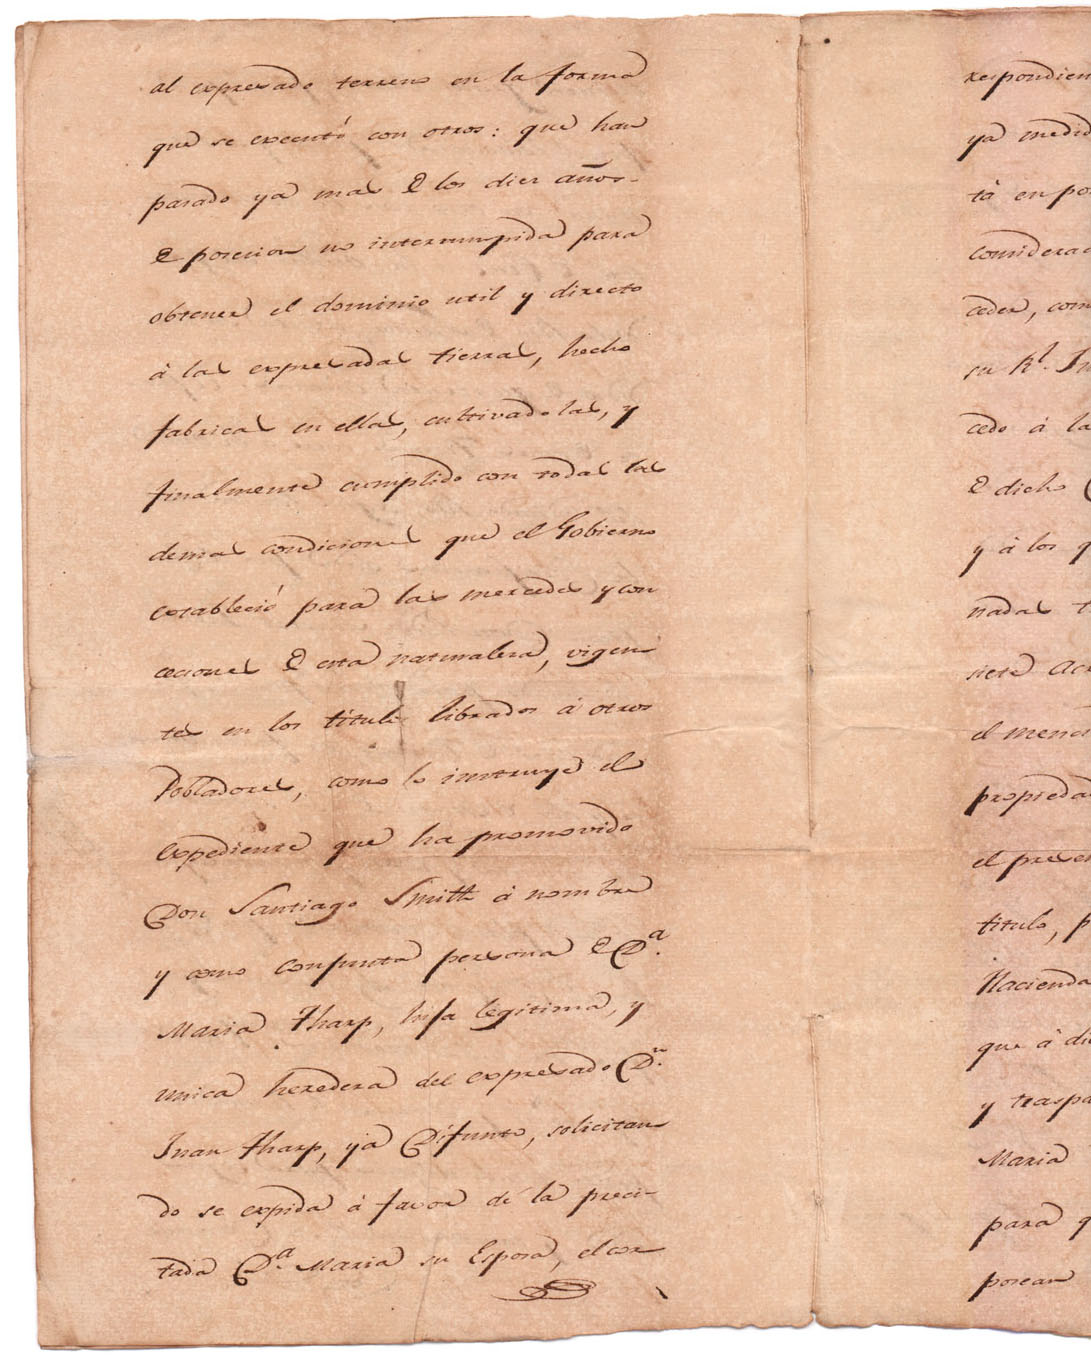 al expresado terreno en la forma
que se executó con otros: que han
pasado ya mas de los diez años
de posecion no interrumpida para
obtener el dominio util y directo
á las expresadas tierras, hecho
fabricas en ellas, cultivadolas, y
finalmente cumplido con todas las
demas condiciones que el Gobierno
estableció para las mercedes y con
cesiones de esta naturaleza, vigen
tes en los titulos librados á otros
Pobladores, como lo instruye el
Expediente que ha promovido
Don Santiago Smith á nombre
y como conjunta persona de D.ª
Maria Tharp, hija legitima, y
unica heredera del expresado D.n
Juan Tharp, ya Difunto, solicitan
do se expida á favor de la preci-
tada D.ª Maria su Esposa, el cor
respondien
ya medid
tá en po
considerac
ceder, com
su Rl.
cedo á la
de dicho
y á los q
nadas t
siete Acr
el menci
propieda
el presen
titulo, p
Hacienda
que á di
y traspa
Maria
para q
posean